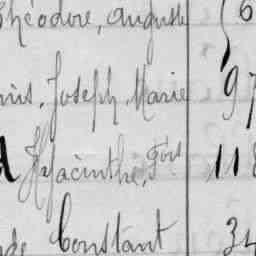 Théodore, Auguste 6
nis, Joseph Marie 97
Hyacinthe, Fois 118
de Constant 34